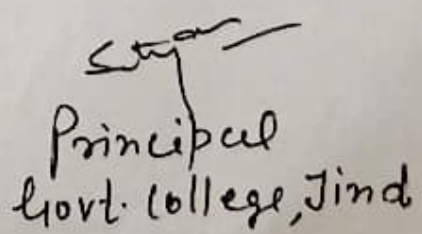 Principal
Govt. College, Jind